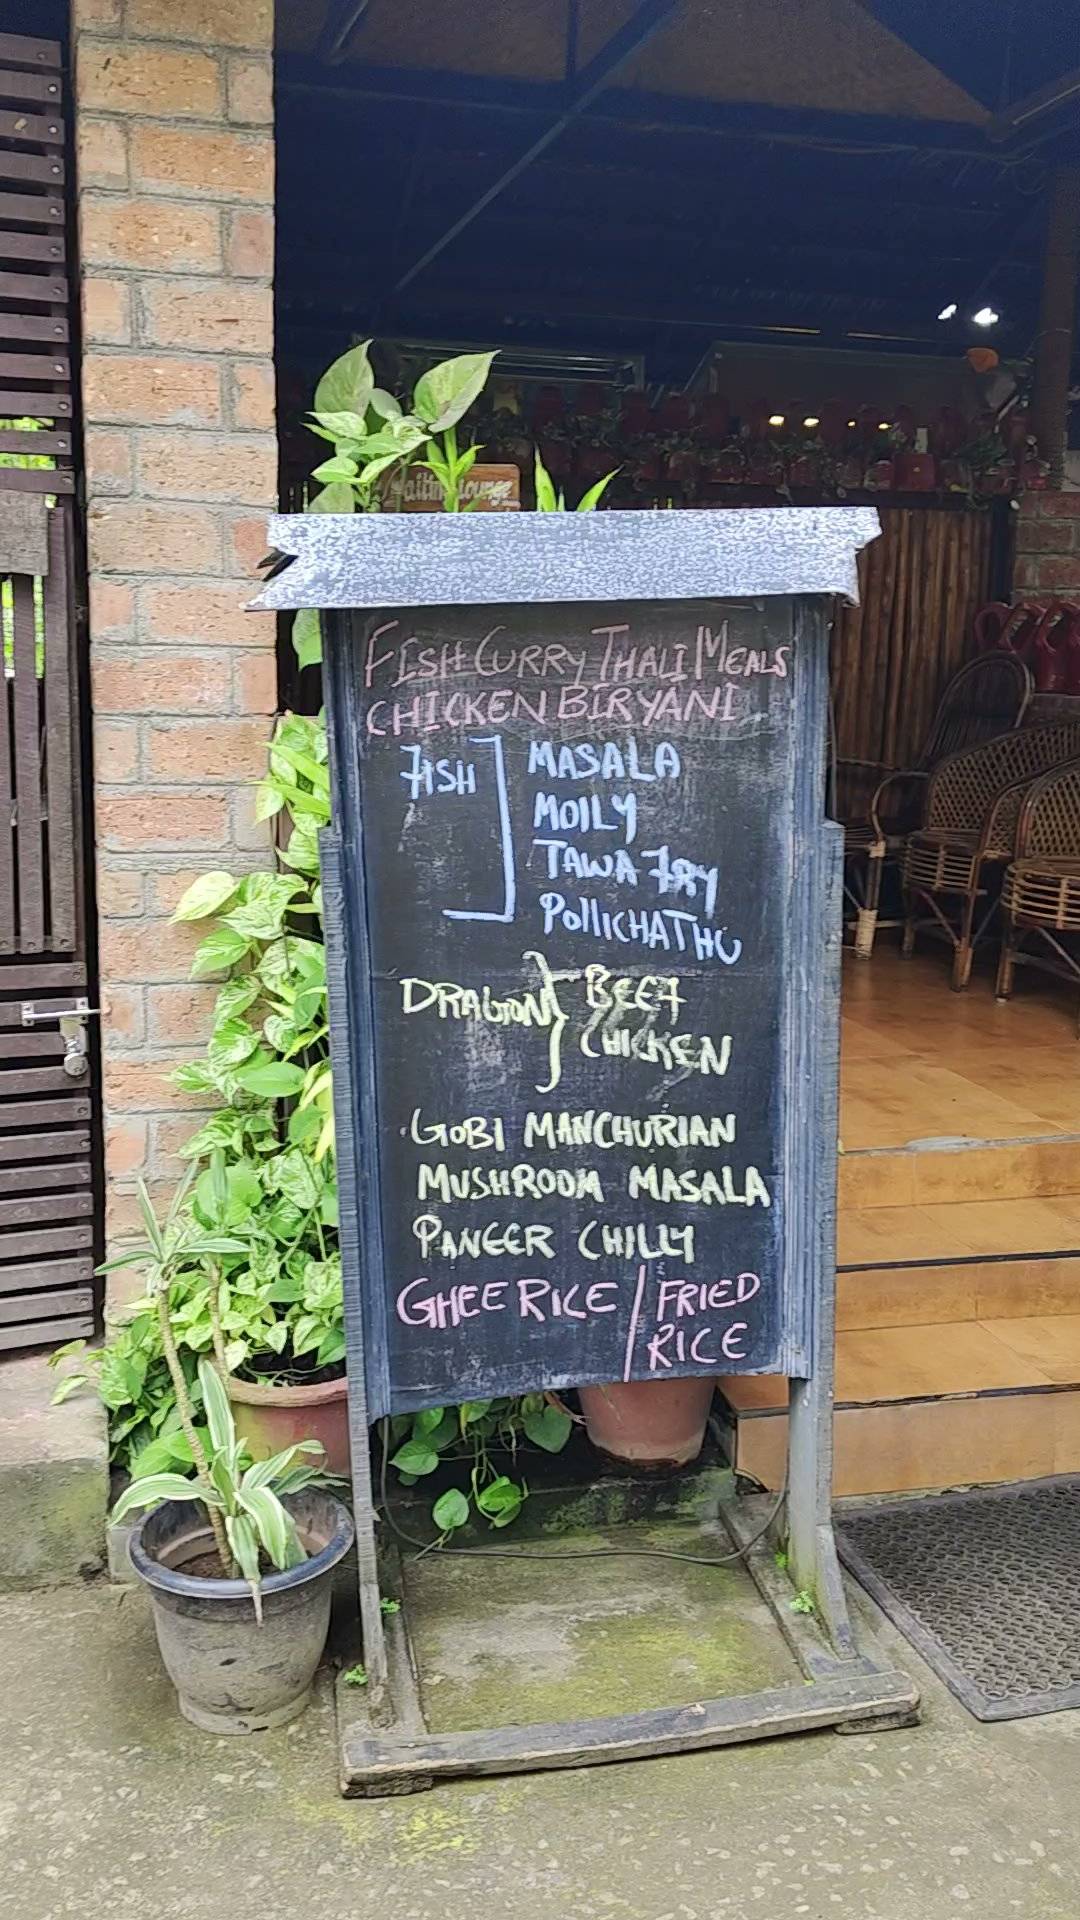 Waiting Lounge
FISH CURRY THALI MEALS
CHICKEN BIRYANI
FISH ] MASALA
MOILY
TAWA FRY
POllICHATHU
DRAGON } BEEF
CHICKEN
GOBI MANCHURIAN
MUSHROOM MASALA
PANEER CHILLY
GHEE RICE / FRIED
RICE